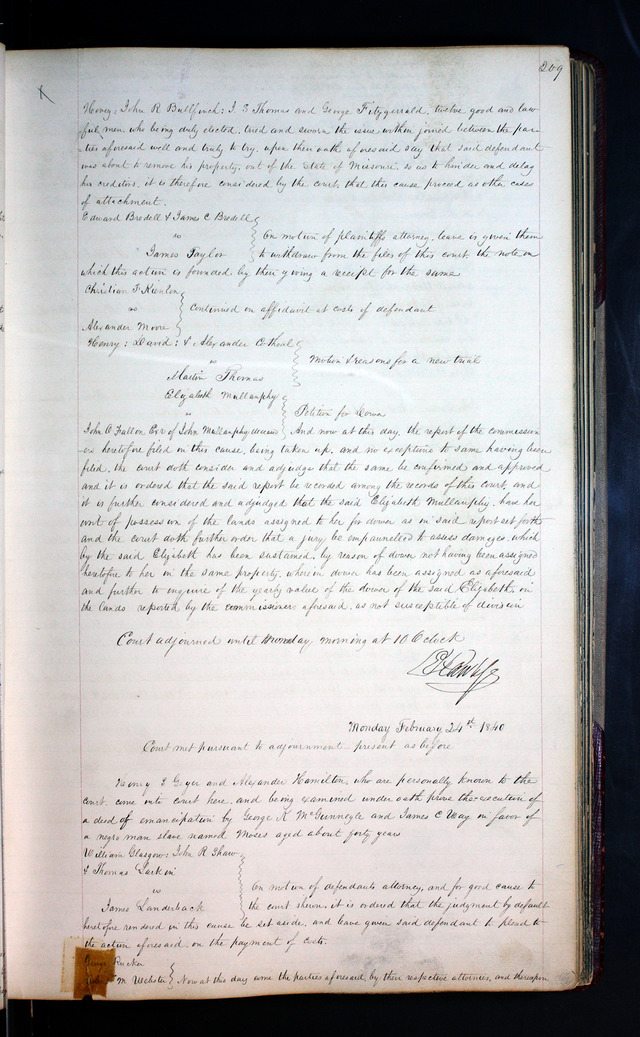 269
Honey; John R Bullfinch; J. S Thomas and George Fitzgerrald, twelve good and law
ful men, who being duly elected, tried and sworn the issue within joined between the par
ties aforesaid well and truly to try, upon their oath aforesaid say that said defendant
was about to remove his property, out of the State of Missouri, so as to hinder and delay
his creditors, it is therefore considered by the court that this cause proceed as other cases
of attachment.
Edward Bredell & James C Bredell
vs
James Taylor
On motion of plaintiffs attorney, leave is given them
to withdraw from the files of this court the note on
which this action is founded by their giving a receipt for the same
Christian F Kienlen
vs
Alexander Moore
Continued on affidavit at costs of defendant
Henry; David; & Alexander
vs
Martin Thomas
Motion & reasons for a new trial
Elizabeth Mullanphy
vs
John O Fallon Exr of John Mullanphy deceased
Petition for Dower
And now at this day, the report of the commission
ers heretofore filed in this cause, being taken up, and no exceptions to same having been
filed, the court doth consider and adjudge that the same be confirmed and approved
and it is ordered that the said report be recorded among the records of this court, and
it is further considered and adjudged that the said Elizabeth Mullanphy, have her
writ of possession of the lands assigned to her for dower as in said report set forth
and the court doth further order that a jury be empanneled to assess damages, which
by the said Elizabeth has been sustained, by reason of dower not having been assigned
heretofore to her in the same property, wherein dower has been assigned as aforesaid
and further to enquire of the yearly value of the dower of the said Elizabeth, in
the lands reported by the commissioners aforesaid, as not susceptible of division
Court adjourned until Monday, morning at 10 O'clock
Monday February 24th 1840
Court met pursuant to adjournment present as before
Henry S Geyer and Alexander Hamilton, who are personally known to the
court, come into court here, and being examined under oath prove the execution of
a deed of emancipation by George K McGunnegle and James C Way in favor of
a negro man slave named Moses aged about forty years
William Glasgow; John R Shaw
& Thomas Larkin
vs
James Landerback
On motion of defendants attorney, and for good cause to
the court shewn, it is ordered that the judgment by default
heretofore rendered in this cause be set aside, and leave given said defendant to plead to
the action aforesaid, on the payment of costs.
George Rucker
M Webster
Now at this day come the parties aforesaid, by their respective attornies, and thereupon